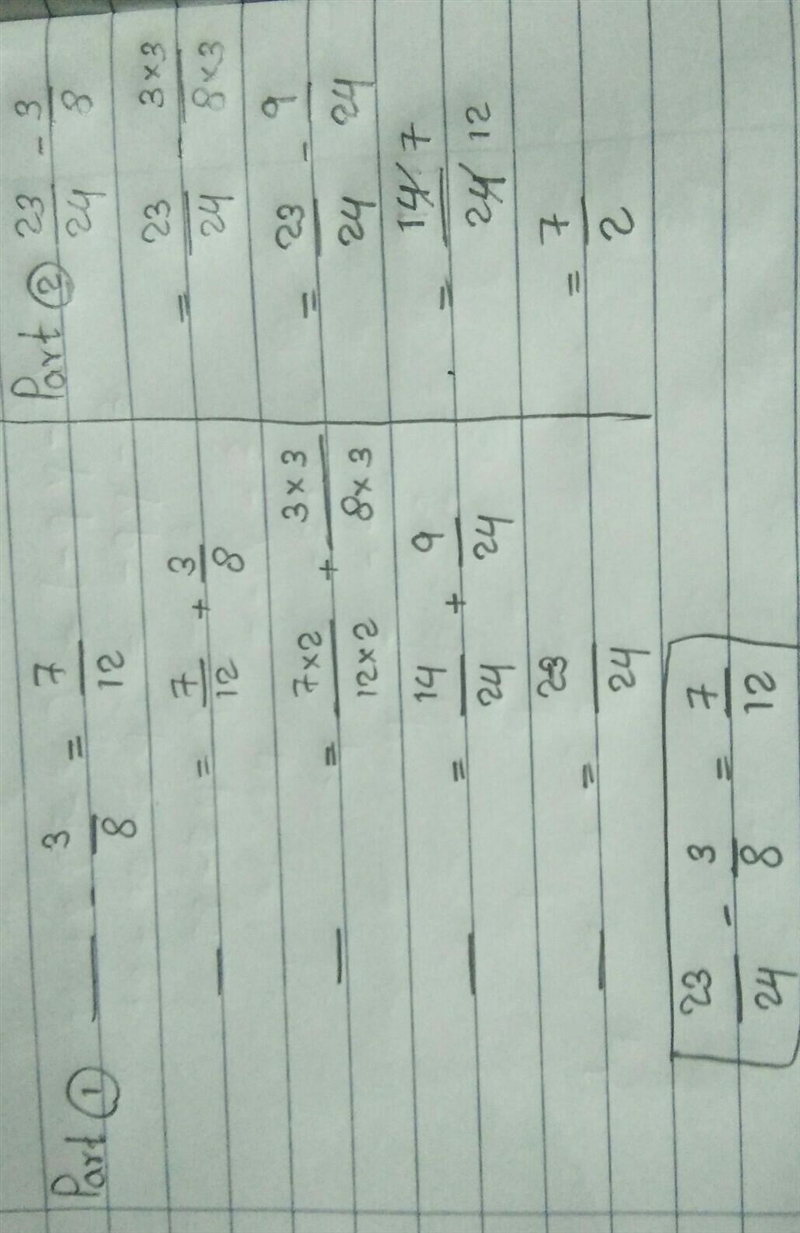 Part ① ___ - 3/8 = 7/12
___ = 7/12 + 3/8
___ = 7×2/12×2 + 3×3/8×3
___ = 14/24 + 9/24
___ = 23/24
23/24 - 3/8 = 7/12
Part ② 23/24 - 3/8
= 23/24 - 3×3/8×3
= 23/24 - 9/24
= 14/24 7/12
= 7/2